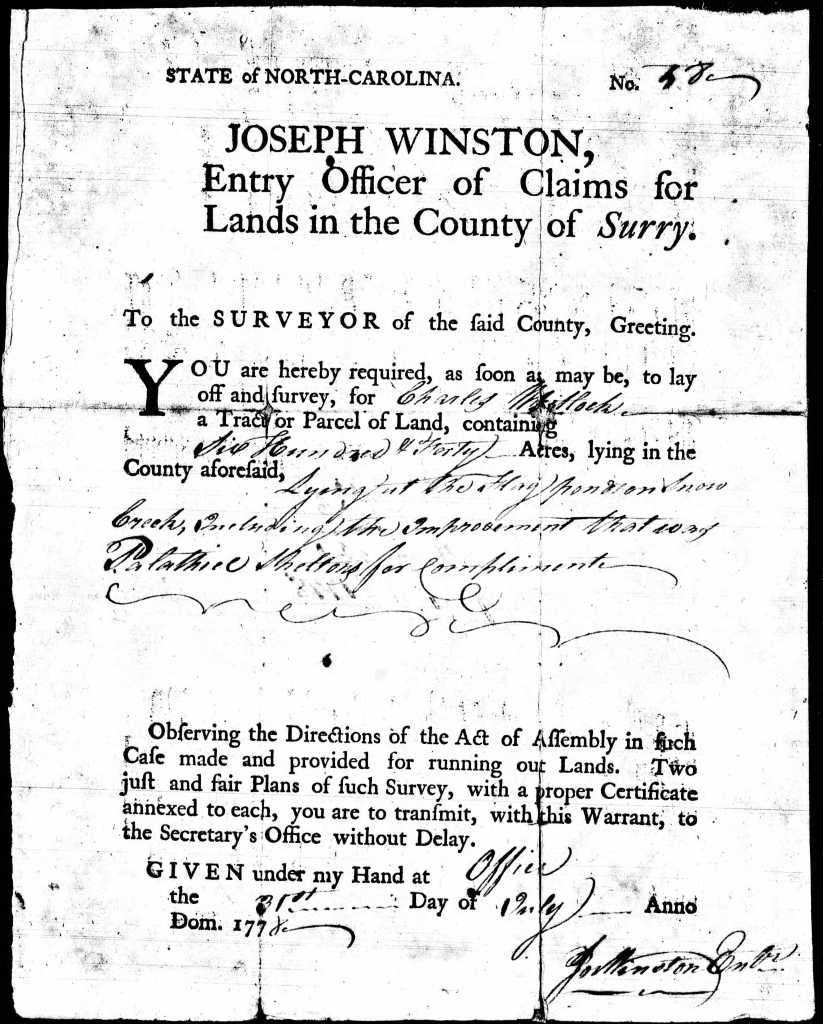 STATE of NORTH-CAROLINA. No. 58
JOSEPH WINSTON,
Entry Officer of Claims for
Lands in the County of Surry.
To the SURVEYOR of the ſaid County, Greeting.
YOU are hereby required, as ſoon as may be, to lay
off and ſurvey, for Charles Whitlock
a Tract or Parcel of Land, containing
Six Hundred & Forty Acres, lying in the
County aforeſaid,
Lying at the Flag ponds on Snow
Creek, Including the Improvement that was
Palathiel Sheltons for Compliment
Obſerving the Directions of the Act of Aſſembly in ſuch
Caſe made and provided for running out Lands. Two
juſt and fair Plans of ſuch Survey, with a proper Certificate
annexed to each, you are to tranſmit, with this Warrant, to
the Secretary's Office without Delay.
GIVEN under my Hand at Office
the 31st Day of July Anno
Dom. 1778
Jos Winston Entr